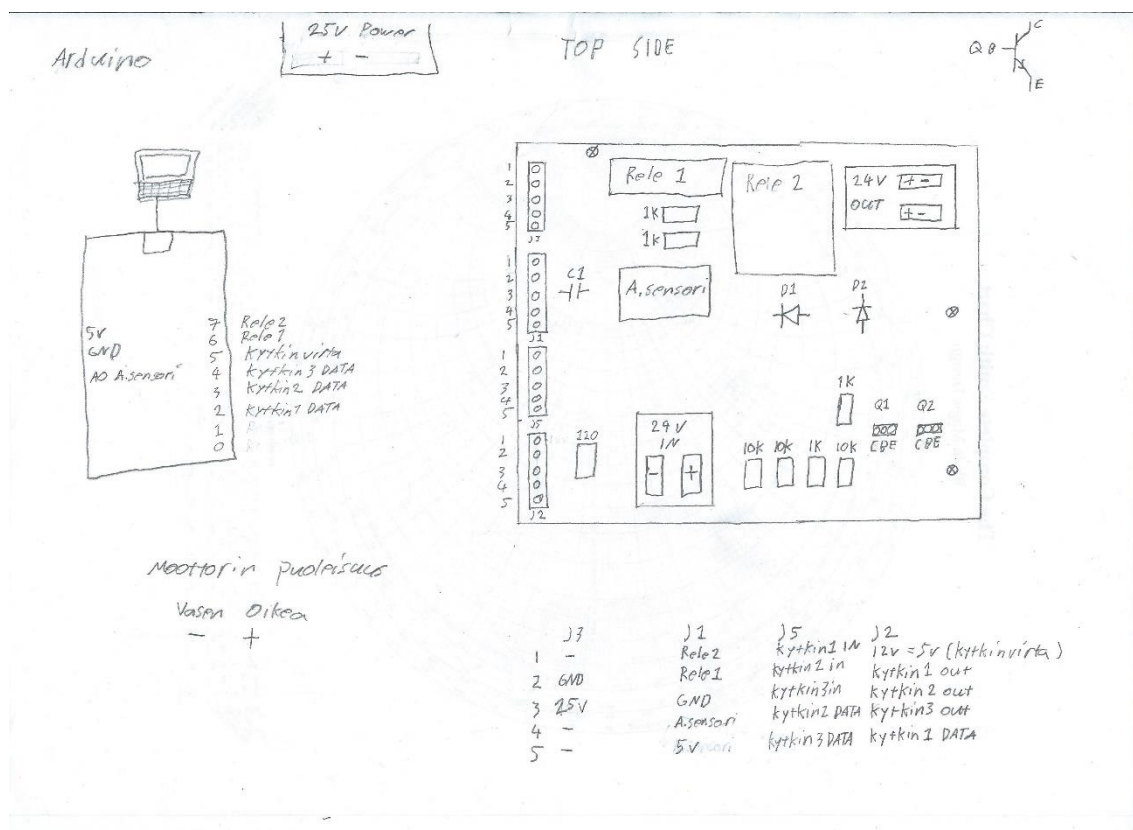 Arduino
25V Power
+ -
TOP SIDE
C
B
E
5V
GND
A0 A.sensori
7 Rele2
6 Rele1
5 Kytkinvirta
4 kytkin3 DATA
3 kytkin2 DATA
2 kytkin1 DATA
1
0
1
2
3
4
5
J3
1
2
3
4
5
J1
1
2
3
4
5
J5
1
2
3
4
5
J2
Rele 1
1K
1K
C1
A.sensori
Rele 2
24V + -
OUT + -
D1
D2
120
24V
IN
- +
1K
10K 10K 1K 10K
Q1 Q2
CBE CBE
Moottorin puoleisuus
Vasen Oikea
- +
J3 J1 J5 J2
1 - Rele2 kytkin1 IN 12V = 5V (kytkinvirta)
2 GND Rele1 kytkin2 in kytkin1 out
3 25V GND kytkin3in kytkin2 out
4 - A.sensori kytkin2 DATA kytkin3 out
5 - 5V kytkin3DATA kytkin1 DATA